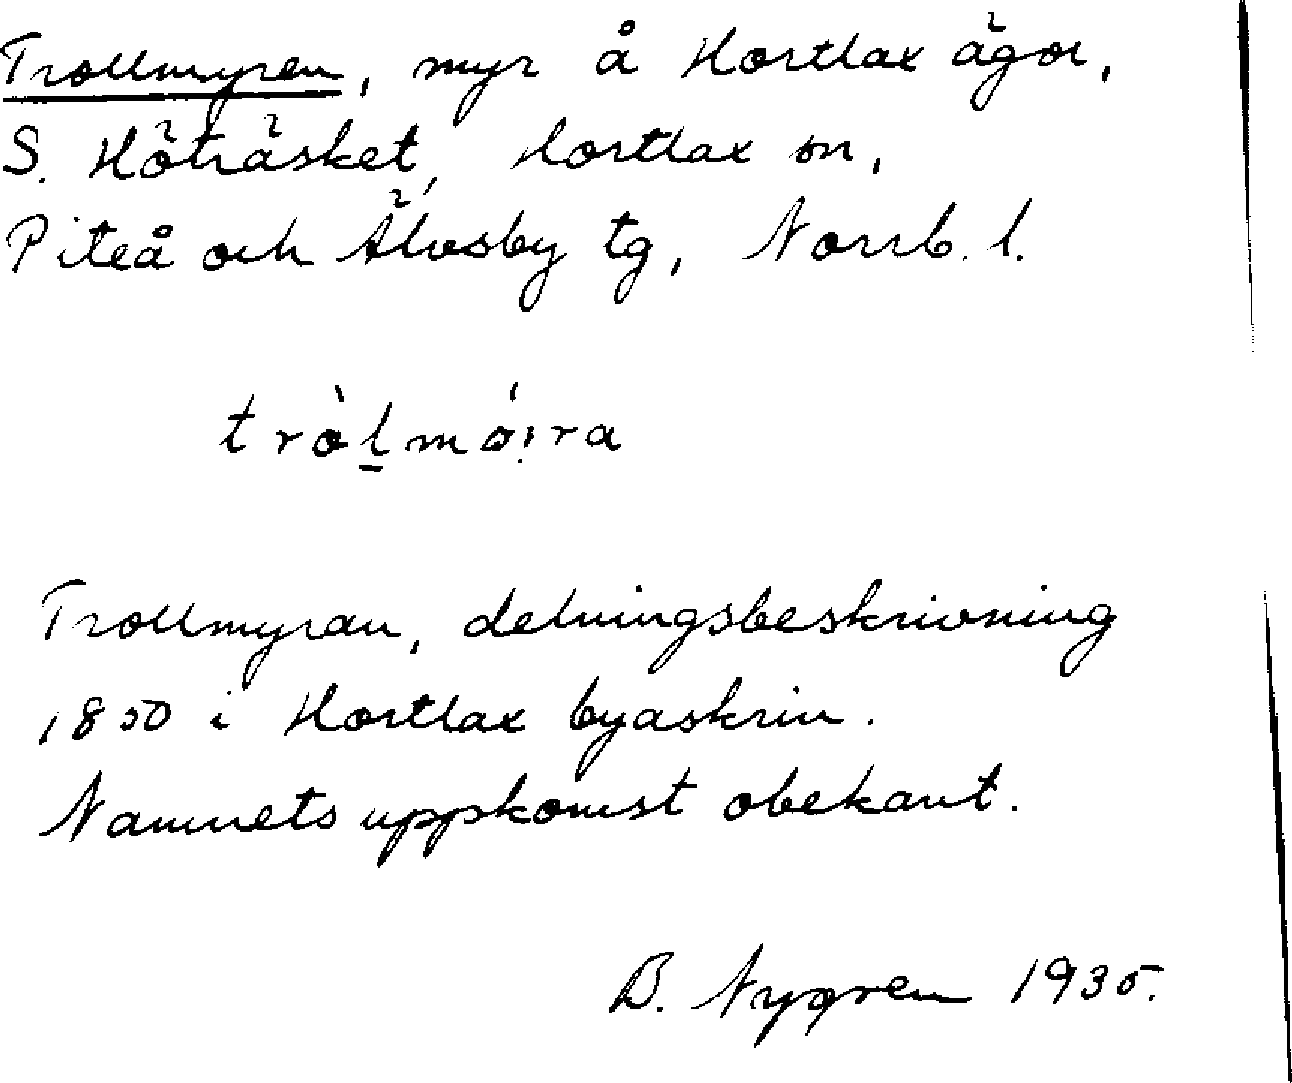 Trollmyren, myr å Hortlax ägor,
S. Höträsket, Hortlax sn,
Piteå och Älvsby tg, Norrb. l.
tròl̲mó!ra
Trollmyran, delningsbeskrivning
1850 i Hortlax byaskrin.
Namnets uppkomst obekant.
B. Nygren 1935.